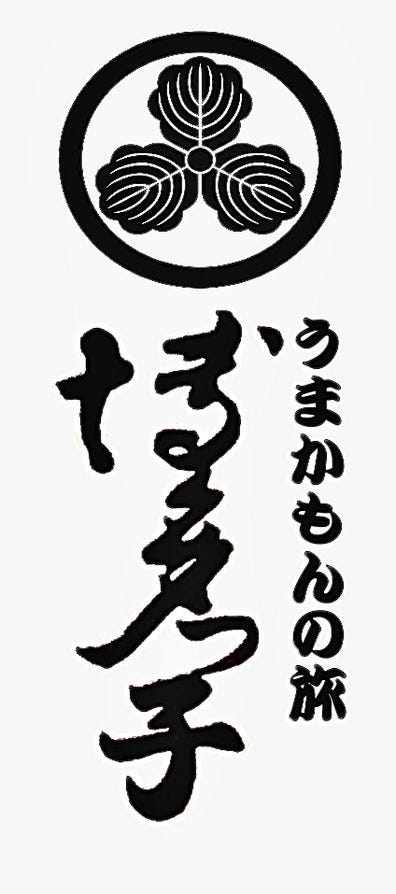 うまかもんの旅
博多っ子